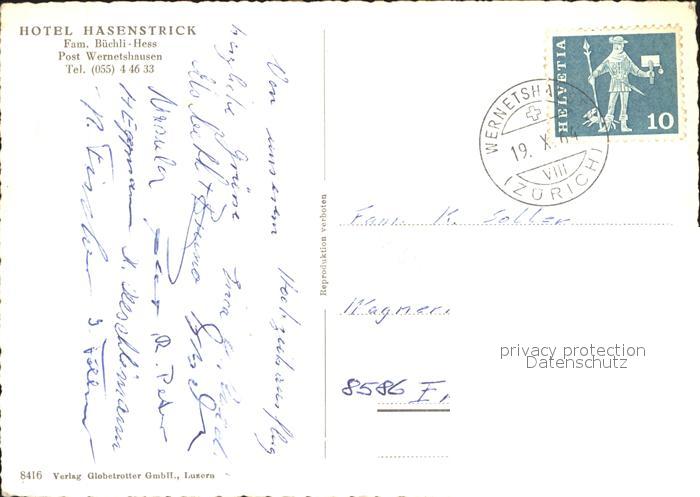 HOTEL HASENSTRICK
Fam. Büchli-Hess
Post Wernetshausen
Tel. (055) 4 46 33
Von unserem Hochzeitsausflug
herzliche Grüsse
Elsbeth + Bruno
Ursula
R. Peter
A. Aeschlimann
R. Fischer
Reproduktion verboten
HELVETIA
10
WERNETSHAUSEN
19. X. 64
VIII
(ZÜRICH)
Fam. K. Soller
Wagner
8586 E
privacy protection
Datenschutz
8416 Verlag Globetrotter GmbH., Luzern